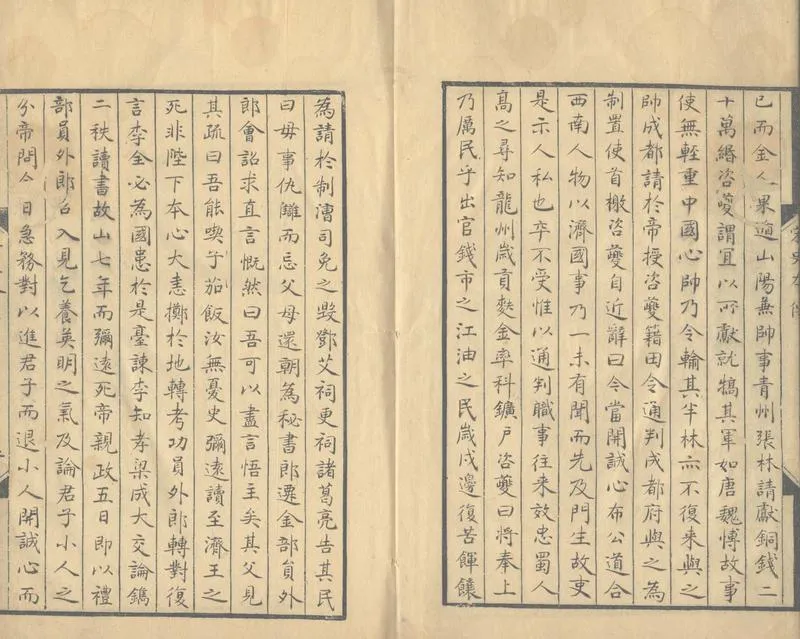 已而金人果遁山陽兼帥事青州張林請獻銅錢二
十萬緡咨夔謂宜以所獻就犒其軍如唐魏愽故事
使無輕重中國心帥乃令輸其半林亦不復来與之
帥成都請於帝授咨夔籍田令通判成都府與之為
制置使首檄咨夔自近辭曰今當開誠心布公道合
西南人物以濟國事乃一未有聞而先及門生故吏
是示人私也卒不受惟以通判職事往来效忠蜀人
高之尋知龍州歲貢麩金率科鑛戶咨夔曰將奉上
乃厲民乎出官錢市之江油之民歲戍邊復苦餫饟
為請於制漕司免之毁鄧艾祠更祠諸葛亮告其民
曰毋事仇讎而忘父母還朝為秘書郎遷金部員外
郎會詔求直言慨然曰吾可以盡言悟主矣其父見
其疏曰吾能喫子茄飯汝無憂史彌遠讀至濟王之
死非陛下本心大恚擲於地轉考功員外郎轉對復
言李全必為國患於是臺諫李知孝梁成大交論鐫
二秩讀書故山七年而彌遠死帝親政五日即以禮
部員外郎召入見乞養英明之氣及論君子小人之
分帝問今日急務對以進君子而退小人開誠心而